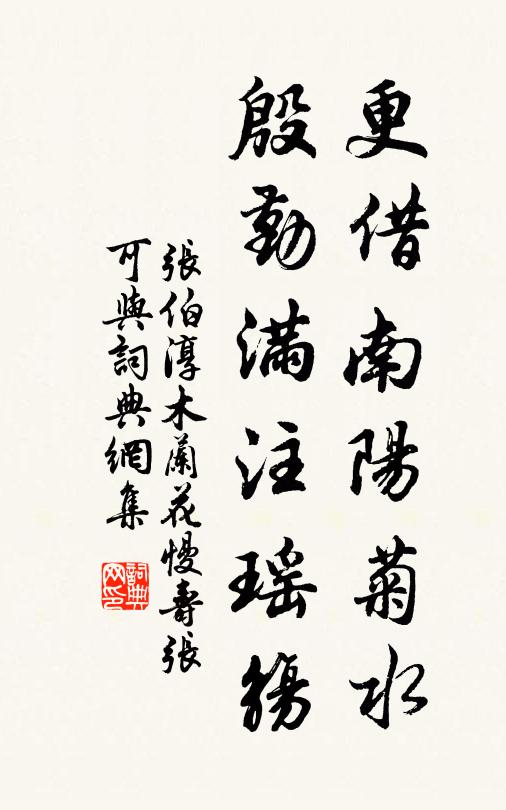 更借南陽菊水
殷勤滿注瑤觴
張伯淳木蘭花慢壽張
可與詞典網集
詞典网印